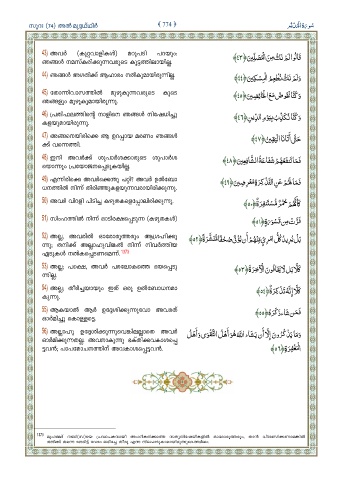 സൂറ: (74) അൽ മുദ്ദഥിർ
﴾ 774 ﴿
سورة المدثر
43) അവർ (കുറ്റവാളികൾ) മറുപടി പറയും:
ഞങ്ങൾ നമസ്കരിക്കുന്നവരുടെ കൂട്ടത്തിലായില്ല.
قَالُوا لَمْ نَكُ مِنَ الْمُصَلِّينَ ﴿٤٣﴾
44) ഞങ്ങൾ അഗതിക്ക് ആഹാരം നൽകുമായിരുന്നില്ല.
وَلَمْ نَكُ نُطْعِمُ الْمِسْكِينَ ﴿٤٤﴾
45) തോന്നിവാസത്തിൽ മുഴുകുന്നവരുടെ കൂടെ
ഞങ്ങളും മുഴുകുമായിരുന്നു.
وَكُنَّا نَخُوضُ مَعَ الْخَائِضِينَ ﴿٤٥﴾
46) പ്രതിഫലത്തിന്റെ നാളിനെ ഞങ്ങൾ നിഷേധിച്ചു
കളയുമായിരുന്നു.
وَكُنَّا نُكَذِّبُ بِيَوْمِ الدِّينِ ﴿٤٦﴾
47) അങ്ങനെയിരിക്കെ ആ ഉറപ്പായ മരണം ഞങ്ങൾ
ക്ക് വന്നെത്തി.
حَتَّىٰ أَتَانَا الْيَقِينُ ﴿٤٧﴾
48) ഇനി അവർക്ക് ശുപാർശക്കാരുടെ ശുപാർശ
യൊന്നും പ്രയോജനപ്പെടുകയില്ല.
فَمَا تَنْفَعُهُمْ شَفَاعَةُ الشَّافِعِينَ ﴿٤٨﴾
49) എന്നിരിക്കെ അവർക്കെന്തു പറ്റി? അവർ ഉൽബോ
ധനത്തിൽ നിന്ന് തിരിഞ്ഞുകളയുന്നവരായിരിക്കുന്നു.
فَمَا لَهُمْ عَنِ التَّذْكِرَةِ مُعْرِضِينَ ﴿٤٩﴾
50) അവർ വിറളി പിടിച്ച കഴുതകളെപ്പോലിരിക്കുന്നു.
كَأَنَّهُمْ حُمُرٌ مُسْتَنْفِرَةٌ ﴿٥٠﴾
51) സിംഹത്തിൽ നിന്ന് ഓടിരക്ഷപ്പെടുന്ന (കഴുതകൾ)
فَرَّتْ مِنْ قَسْوَرَةٍ ﴿٥١﴾
52) അല്ല, അവരിൽ ഓരോരുത്തരും ആഗ്രഹിക്കു
ന്നു; തനിക്ക് അല്ലാഹുവിങ്കൽ നിന്ന് നിവർത്തിയ
ഏടുകൾ നൽകപ്പെടണമെന്ന്.
بَلْ يُرِيدُ كُلُّ امْرِئٍ مِنْهُمْ أَنْ يُؤْتَىٰ صُحُفًا مُنَشَّرَةً ﴿٥٢﴾
53) അല്ല; പക്ഷെ, അവർ പരലോകത്തെ ഭയപ്പെടു
ന്നില്ല.
كَلَّا بَلْ لَا يَخَافُونَ الْآخِرَةَ ﴿٥٣﴾
54) അല്ല; തീർച്ചയായും ഇത് ഒരു ഉൽബോധനമാ
കുന്നു.
كَلَّا إِنَّهُ تَذْكِرَةٌ ﴿٥٤﴾
55) ആകയാൽ ആർ ഉദ്ദേശിക്കുന്നുവോ അവരത്
ഓർമിച്ചു കൊള്ളട്ടെ.
فَمَنْ شَاءَ ذَكَرَهُ ﴿٥٥﴾
56) അല്ലാഹു ഉദ്ദേശിക്കുന്നുവെങ്കിലല്ലാതെ അവർ
ഓർമിക്കുന്നതല്ല. അവനാകുന്നു ഭക്തിക്കവകാശപ്പെ
ട്ടവൻ; പാപമോചനത്തിന് അവകാശപ്പെട്ടവൻ.
وَمَا يَذْكُرُونَ إِلَّا أَنْ يَشَاءَ اللَّهُ هُوَ أَهْلُ التَّقْوَىٰ وَأَهْلُ
الْمَغْفِرَةِ ﴿٥٦﴾